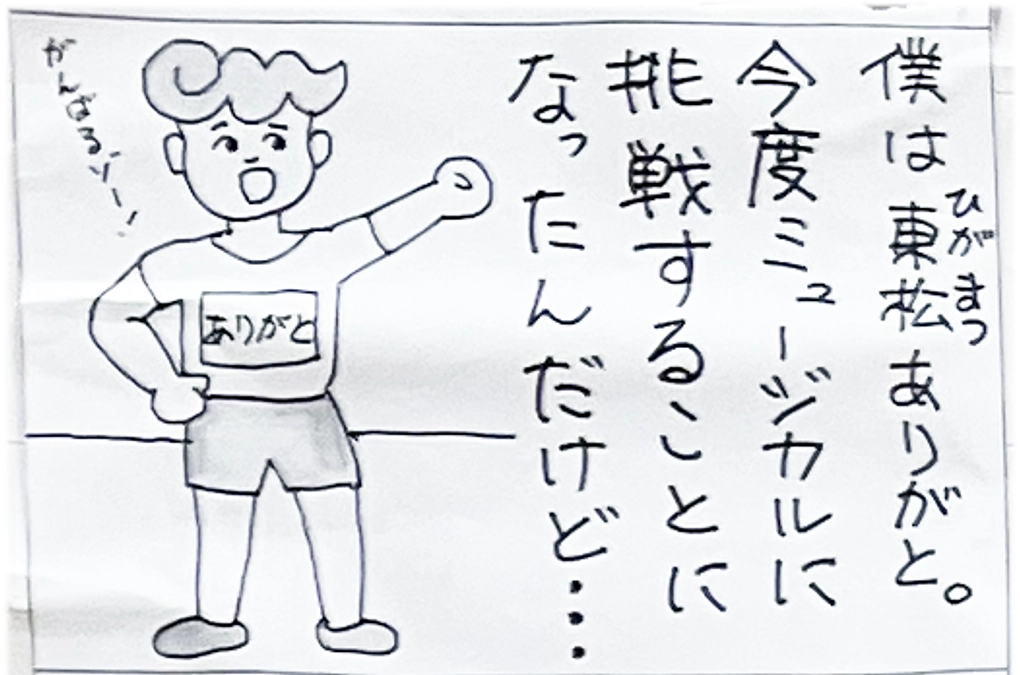 僕は東松ありがと。
ひがまつ
今度ミュージカルに
挑戦することに
なったんだけど…
がんばるゾー!
ありがと